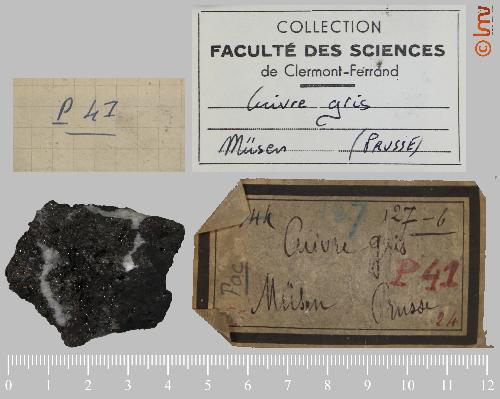 COLLECTION
FACULTÉ DES SCIENCES
de Clermont-Ferrand
Cuivre gris
Müsen (PRUSSE)
P 41
127
127-6
Cuivre gris
P 41
Müsen Prusse
24
Poc
0 1 2 3 4 5 6 7 8 9 10 11 12
© lmv